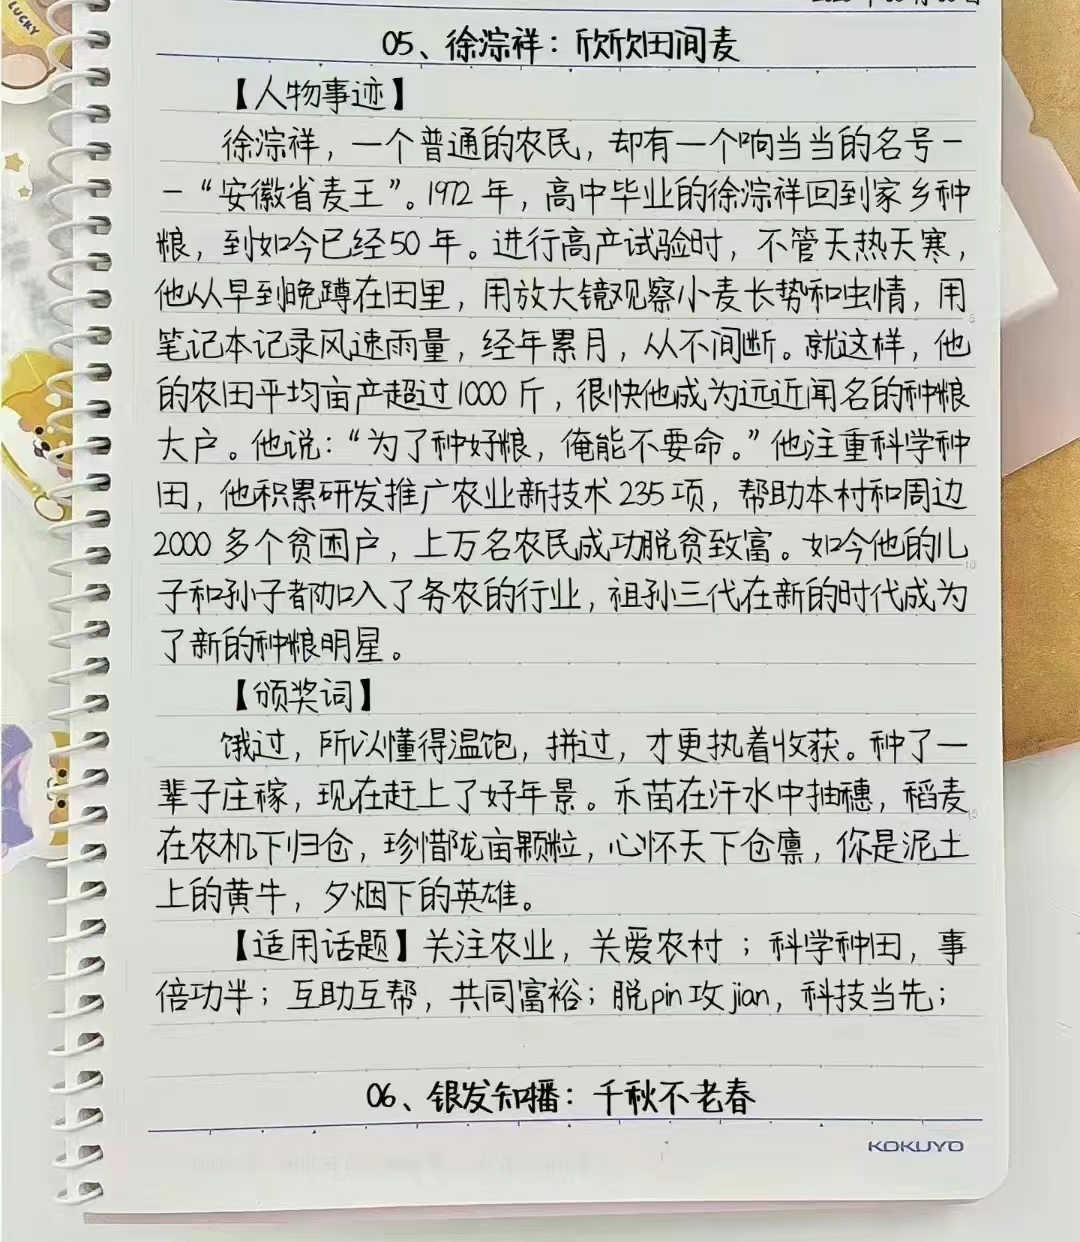 LUCKY
05、徐淙祥：欣欣田间麦
【人物事迹】
徐淙祥，一个普通的农民，却有一个响当当的名号-
-“安徽省麦王”。1972年，高中毕业的徐淙祥回到家乡种
粮，到如今已经50年。进行高产试验时，不管天热天寒，
他从早到晚蹲在田里，用放大镜观察小麦长势和虫情，用
笔记本记录风速雨量，经年累月，从不间断。就这样，他
的农田平均亩产超过1000斤，很快他成为远近闻名的种粮
大户。他说：“为了种好粮，俺能不要命。”他注重科学种
田，他积累研发推广农业新技术235项，帮助本村和周边
2000多个贫困户，上万名农民成功脱贫致富。如今他的儿
子和孙子都加入了务农的行业，祖孙三代在新的时代成为
了新的种粮明星。
【颁奖词】
饿过，所以懂得温饱，拼过，才更执着收获。种了一
辈子庄稼，现在赶上了好年景。禾苗在汗水中抽穗，稻麦
在农机下归仓，珍惜陇亩颗粒，心怀天下仓廪，你是泥土
上的黄牛，夕烟下的英雄。
【适用话题】关注农业，关爱农村；科学种田，事
倍功半；互助互帮，共同富裕；脱pin攻jian，科技当先；
06、银发知播：千秋不老春
KOKUYO